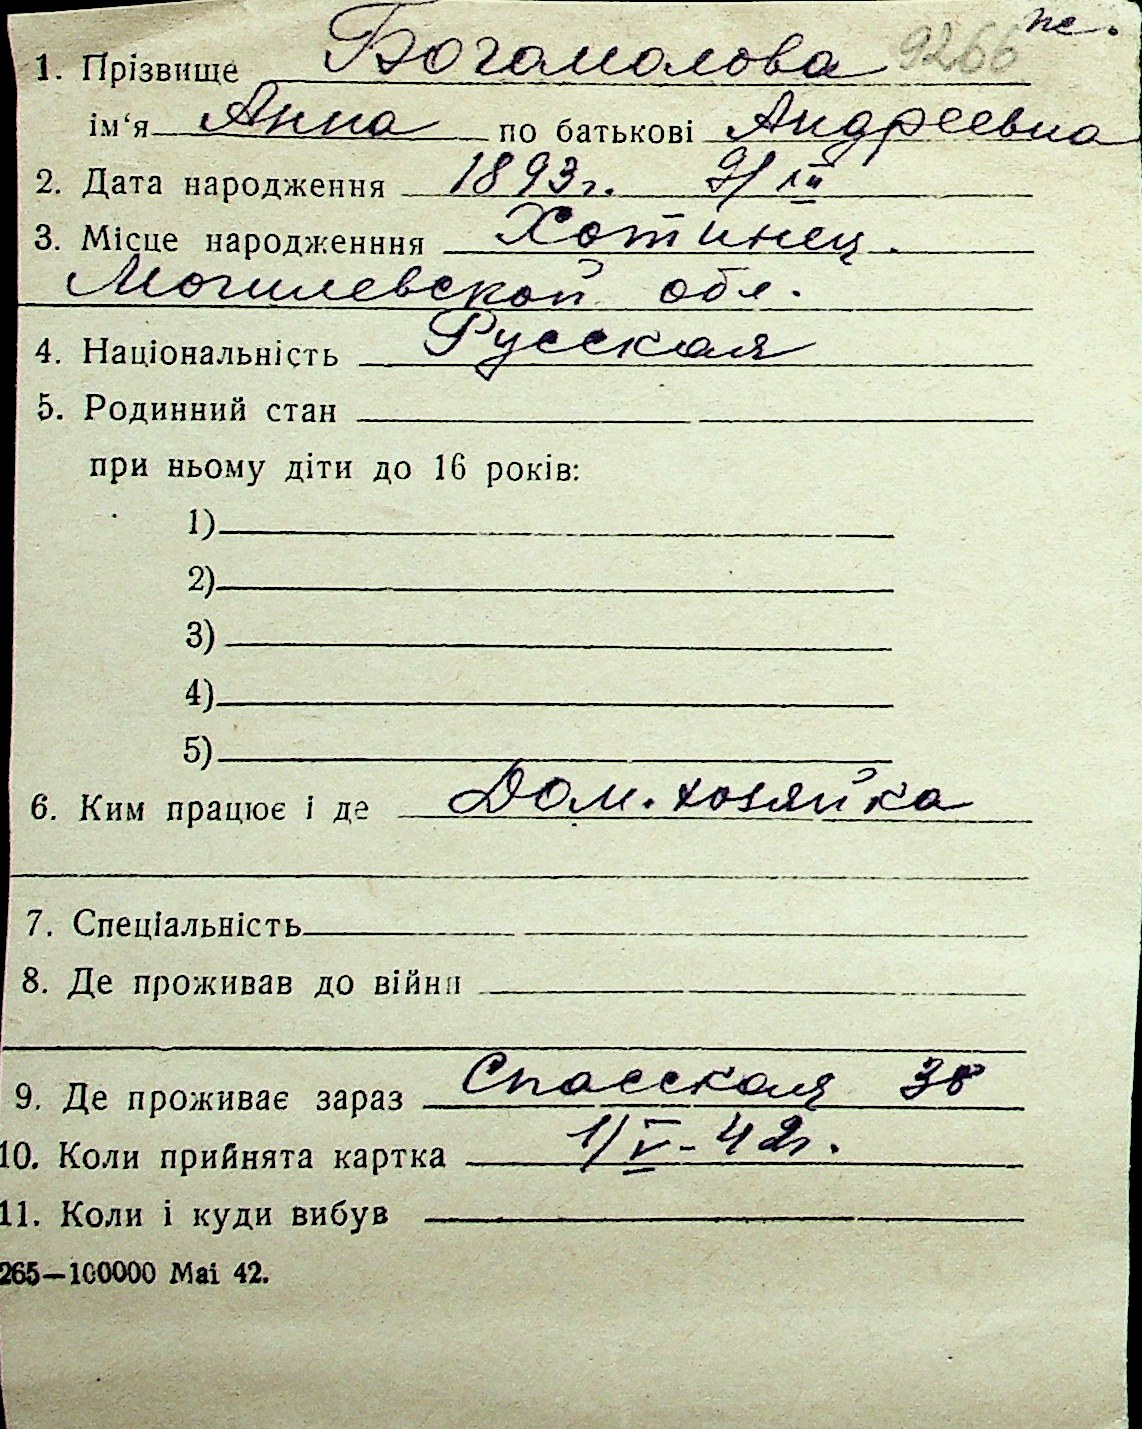 ж.
1. Прізвище Богамолова 9266
ім‘я Анна по батькові Андреевна
2. Дата народження 1893г. 9/III
3. Місце народженння Хотинец.
Могилевской обл.
4. Національність Русская
5. Родинний стан
при ньому діти до 16 років:
1)
2)
3)
4)
5)
6. Ким працює і де Дом. хозяйка
7. Спеціальність
8. Де проживав до війни
9. Де проживає зараз Спасская 38
10. Коли прийнята картка 1/V-42г.
11. Коли і куди вибув
265—100000 Mai 42.